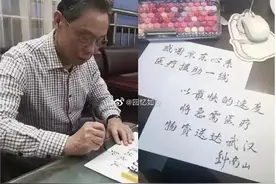 我国京东心系
医疗援助一线
以最快的速度
将急需医疗
物资送达武汉
钟南山
@回忆如